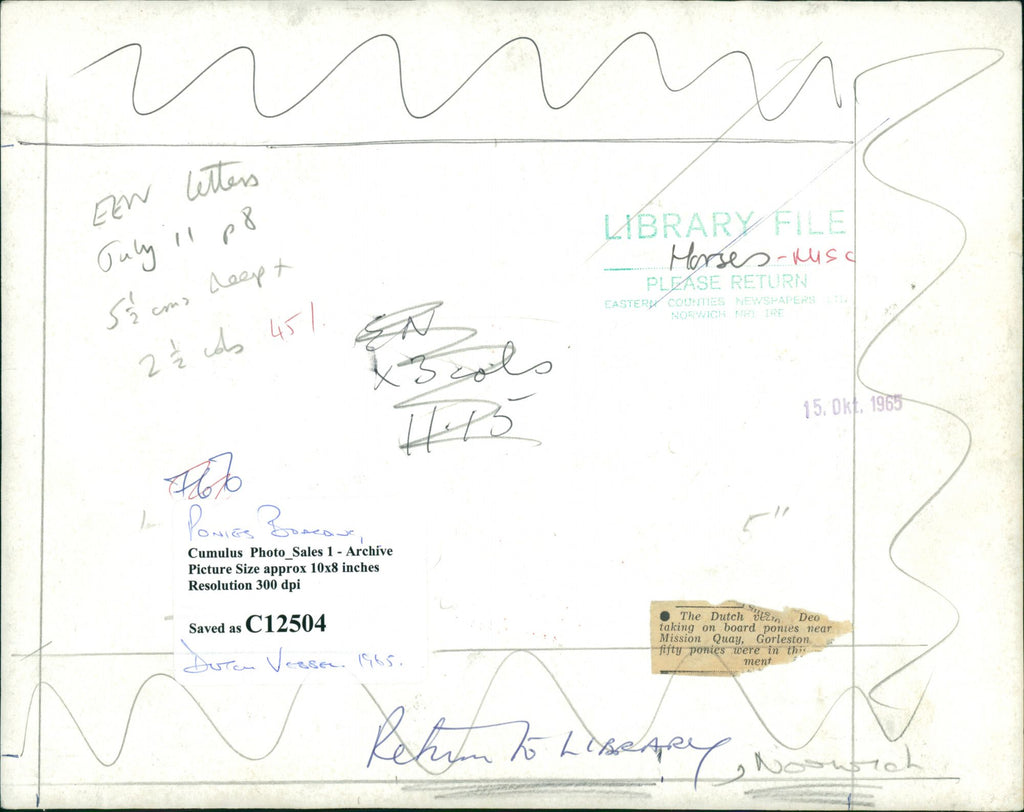 EEN letters
July 11 p 8
5½ cms deep +
2½ cols 45%
LIBRARY FILE
Horses - MISC
PLEASE RETURN
EASTERN COUNTIES NEWSPAPERS LTD
NORWICH NR1 1RE
EN
x 3 cols
11.15
15. Okt. 1965
5"
Ponies Boarding,
Cumulus Photo_Sales 1 - Archive
Picture Size approx 10x8 inches
Resolution 300 dpi
Saved as C12504
Dutch Vessel 1965.
● The Dutch Deo
taking on board ponies near
Mission Quay, Gorleston
fifty ponies were in this
ment
Return to LIBRARY, Norwich